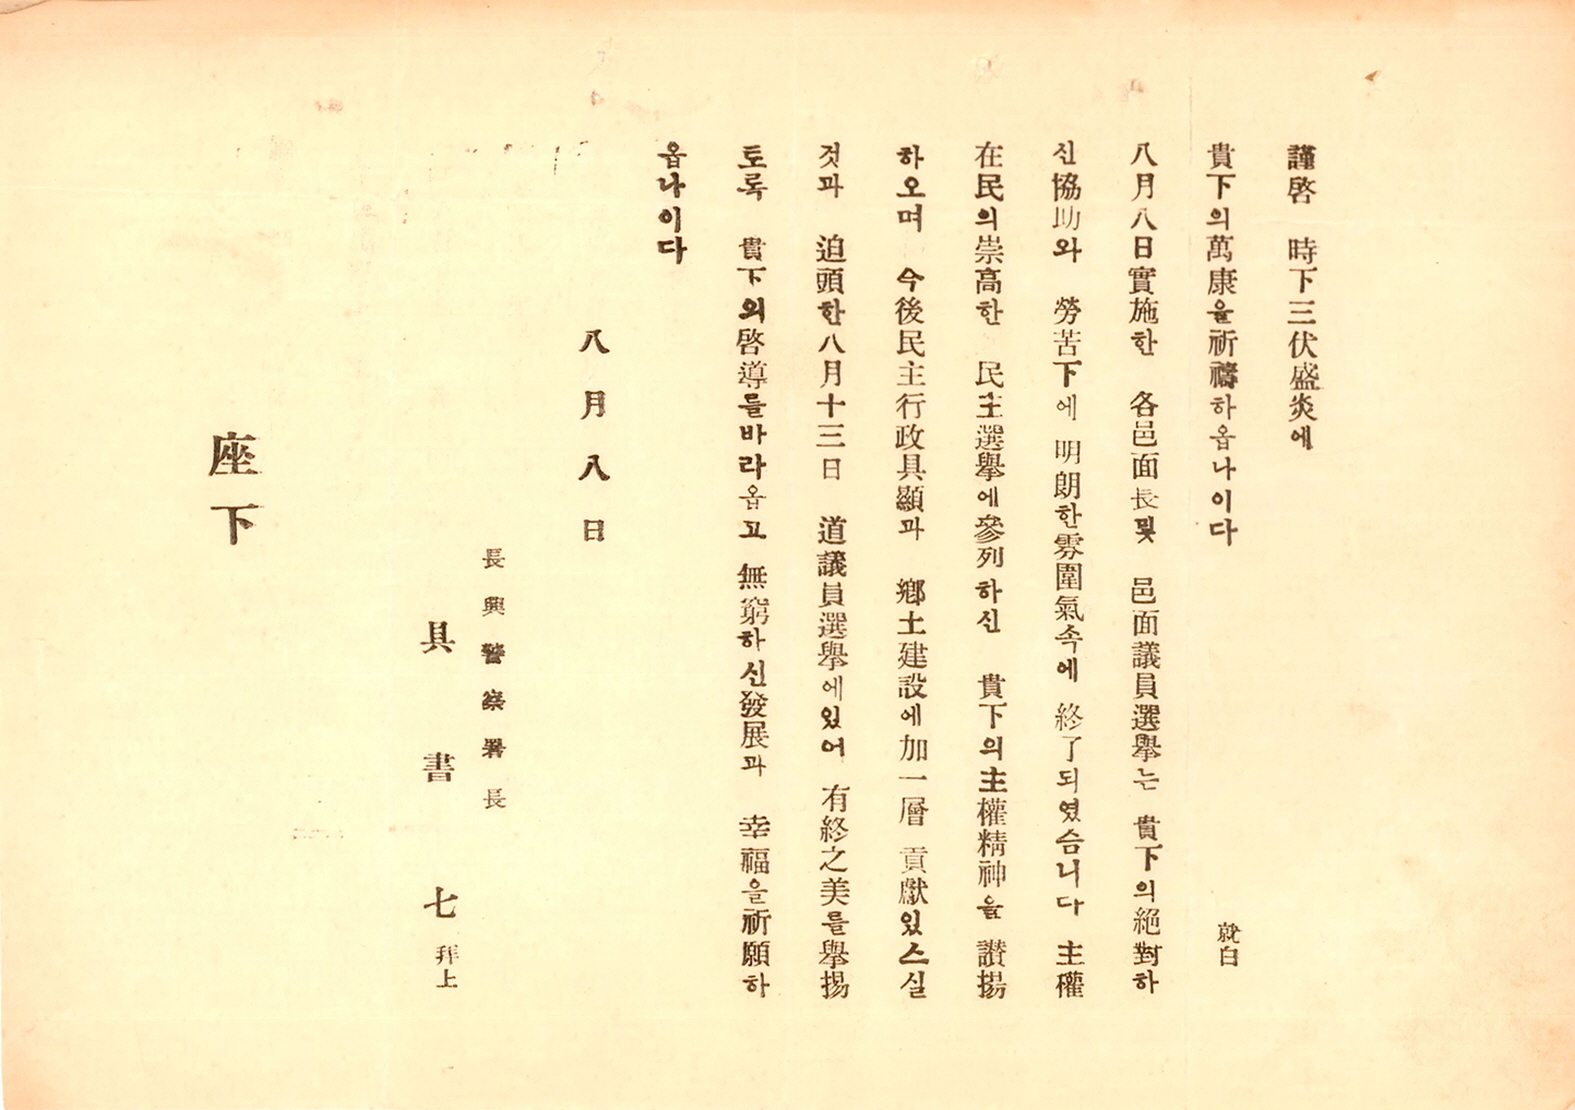 謹啓 時下三伏盛炎에
貴下의萬康을祈禱하옵나이다 就白
八月八日實施한 各邑面長및 邑面議員選擧는 貴下의絕對하
신協助와 勞苦下에 明朗한雰圍氣속에 終了되였슴니다 主權
在民의崇高한 民主選擧에參列하신 貴下의主權精神을 讃揚
하오며 今後民主行政具顯과 鄕土建設에加一層 貢獻있스실
것과 迫頭한八月十三日 道議員選擧에있어 有終之美를擧揚
토록 貴下의啓導를바라옵고 無窮하신發展과 幸福을祈願하
옵나이다
八月八日
長興警察署長
具書七 拜上
座下